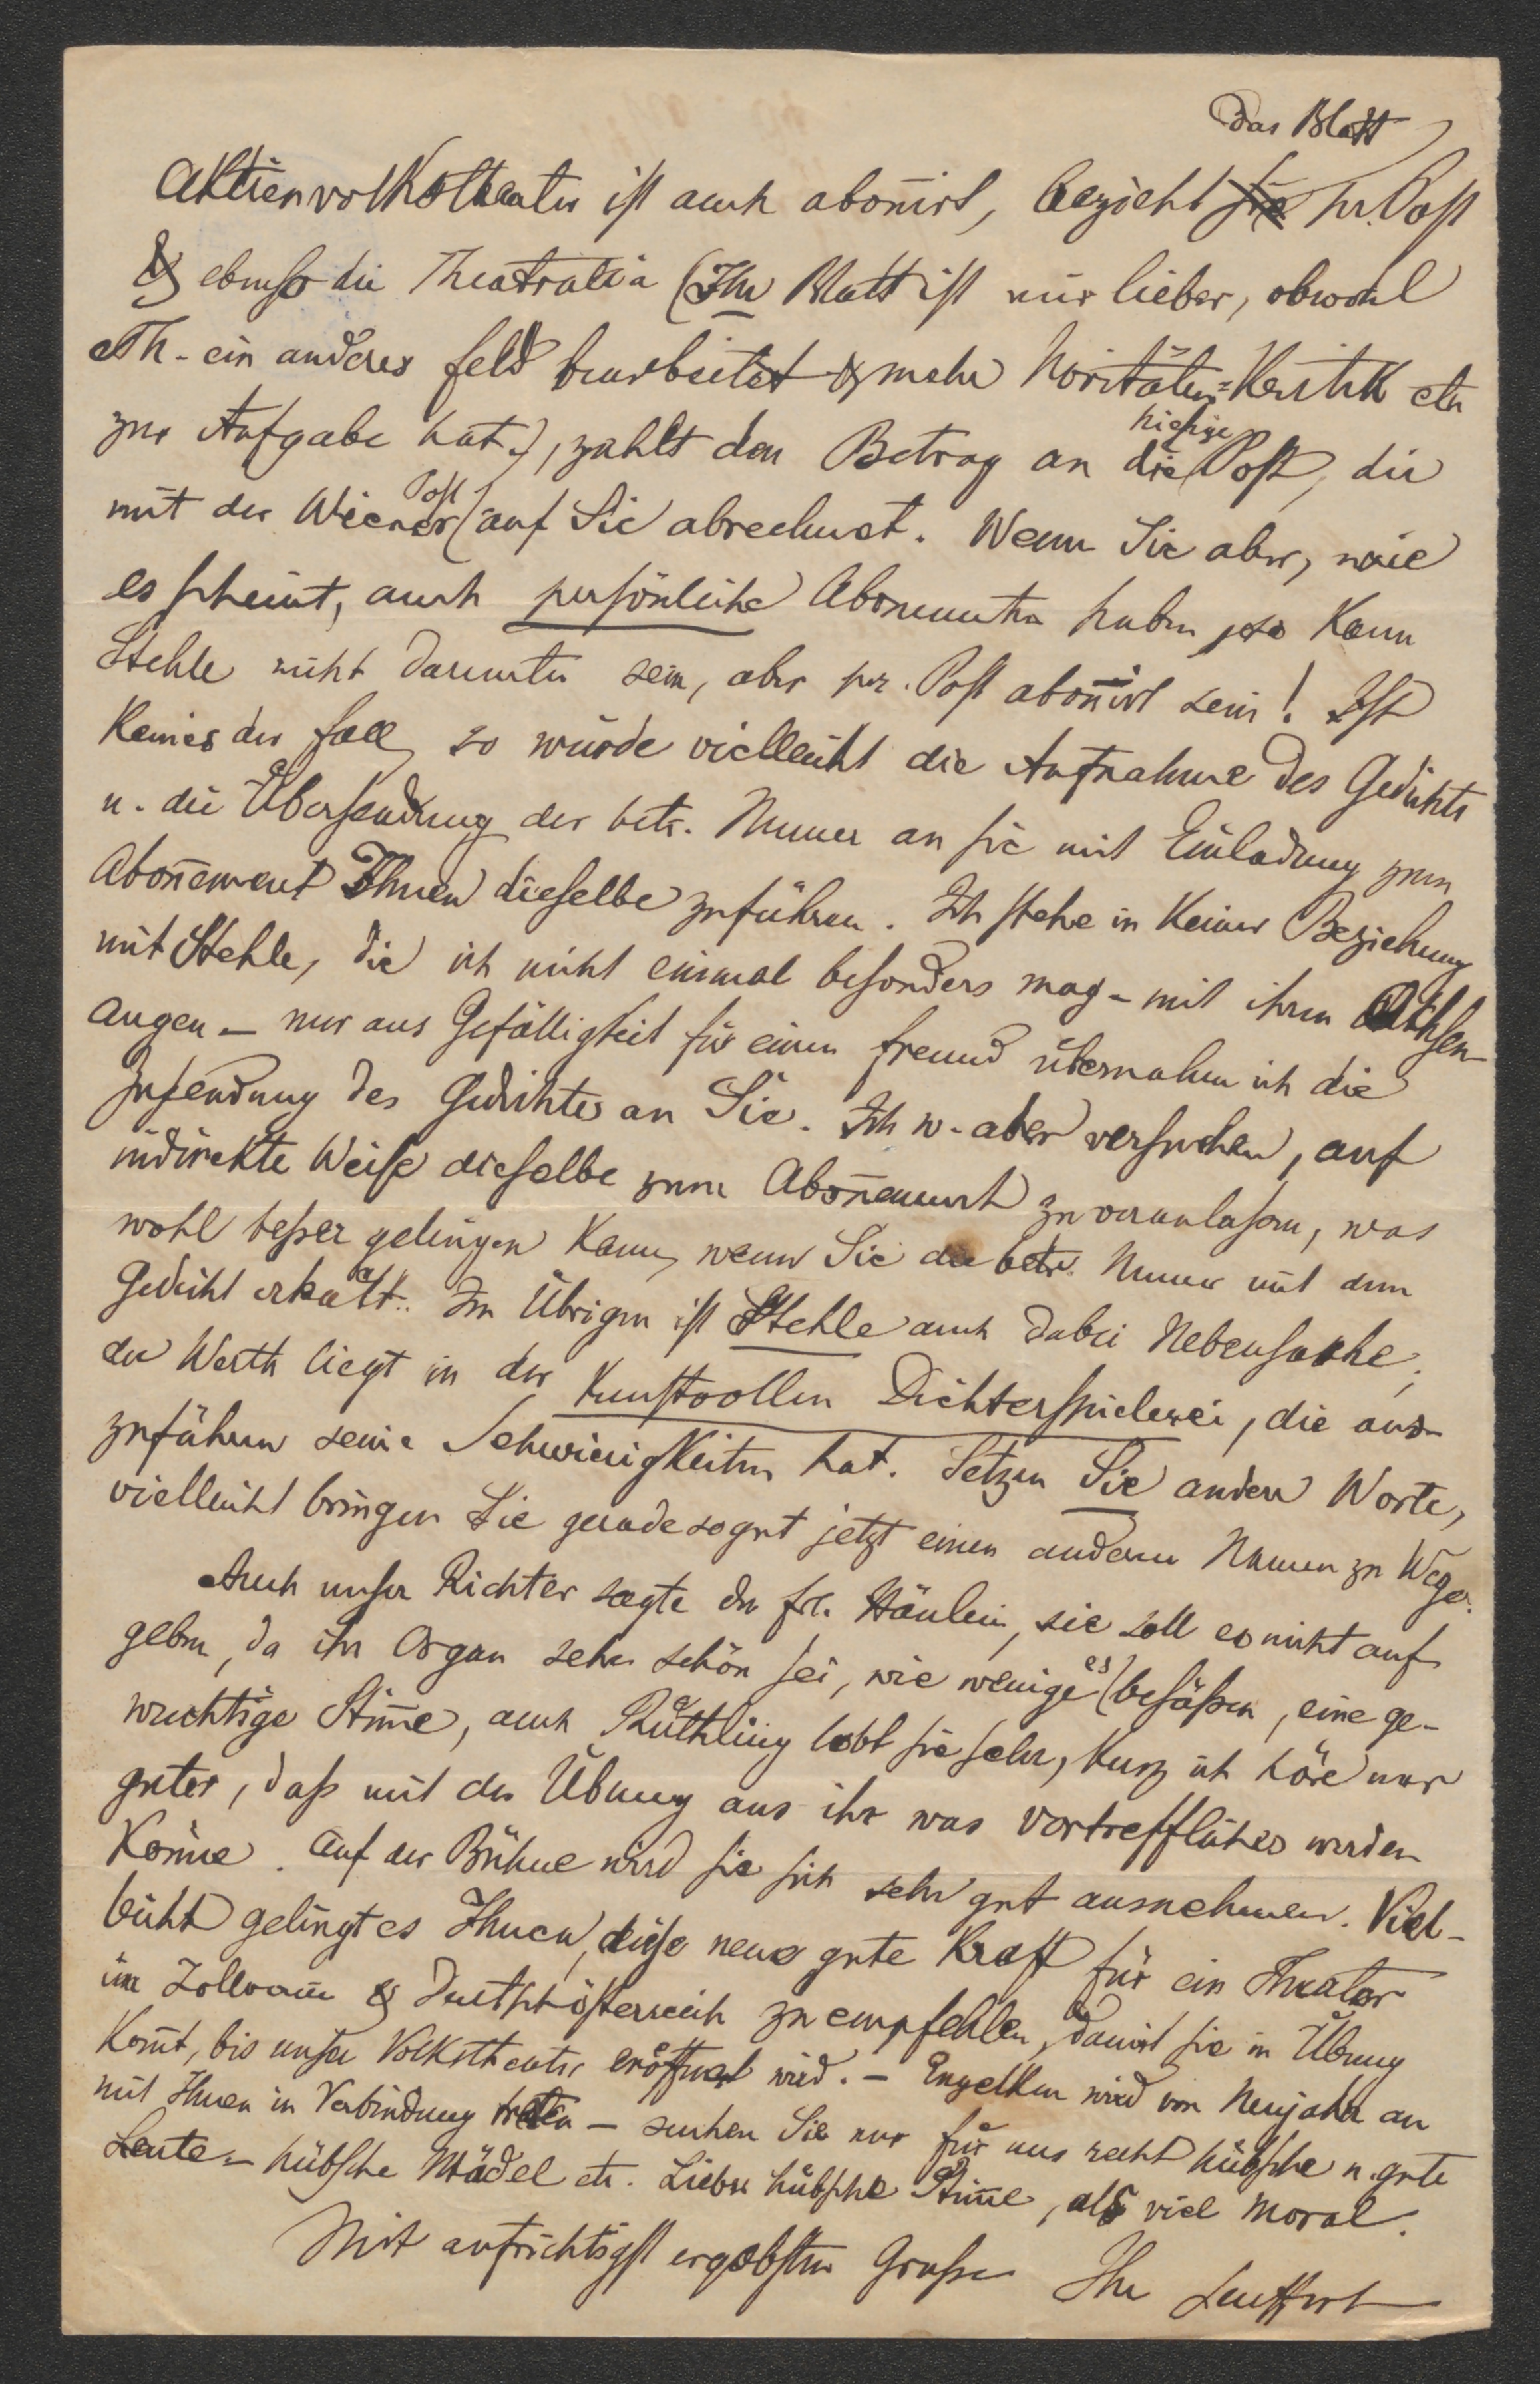 das Blatt
Aktienvolkstheater ist auch abonīrt, bezieht sie pr. Post
& ebenso die Theatralia (Ihr Blatt ist mir lieber, obwohl
Th. ein anderes Feld bearbeitet & mehr Novitäten=Kritik etc
zur Aufgabe hat.), zahlt den Betrag an die hiesige Post, die
mit der Wiener Post auf Sie abrechnet. Wenn Sie aber, wie
es scheint, auch persönliche Abonenten haben, so kann
Stehle nicht darunter sein, aber pr. Post abonīrt sein! Ist
Keines der Fall, so würde vielleicht die Aufnahme des Gedichts
u. die Übersendung der betr. Numer an sie mit Einladung zum
Abonēment Ihnen dieselbe zuführen. Ich stehe in keiner Beziehung
mit Stehle, die ich nicht einmal besonders mag – mit ihren Ochsen-
augen – nur aus Gefälligkeit für einen Freund übernahm ich die
Zusendung des Gedichtes an Sie. Ich w. aber versuchen, auf
indirekte Weise dieselbe zum Abonēment zu veranlaßen, was
wohl beßer gelingen kann, wenn Sie die betr. Numer mit dem
Gedicht erhält. Im Übrigen ist Stehle auch dabei Nebensache,
der Werth liegt in der kunstvollen Dichterspielerei, die aus-
zuführen seine Schwierigkeiten hat. Setzen Sie andere Worte,
vielleicht bringen Sie geradesogut jetzt einen anderen Namen zu Wege.
Auch unser Richter sagte der Frl. Stäulein, sie soll es nicht auf
geben, da ihr Organ sehr schön sei, wie wenige es besäßen, eine ge-
wichtige Stim̄e, auch Rüthling lobt sie sehr, kurz ich höre nur
gutes, daß mit der Übung aus ihr was vortreffliches werden
könne. Auf der Bühne wird sie sich sehr gut ausnehmen. Viel-
leicht gelingt es Ihnen, diese neue gute Kraft für ein Theater
im Zollverein & Deutschösterreich zu empfehlen, damit sie in Übung
kom̄t, bis unser Volkstheater eröffnet wird. – Engelken wird von Neujahr an
mit Ihnen in Verbindung treten – suchen Sie nur für uns recht hübsche u. gute
Leute – hübsche Mädel etc. Lieber hübsche Stim̄e, als viel Moral.
Mit aufrichtigst ergebstem Gruße Ihr Leuffert